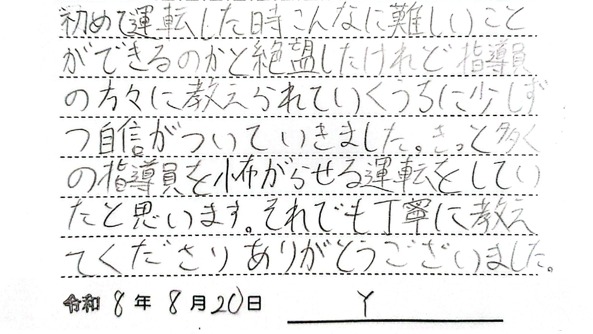 初めて運転した時こんなに難しいこと
ができるのかと絶盟したけれど指導員
の方々に教えられていくうちに少しず
つ自信がついていきました。きっと多く
の指導員を怖がらせる運転をしてい
たと思います。それでも丁寧に教え
てくださりありがとうございました。
令和 8 年 8 月 20 日 Y